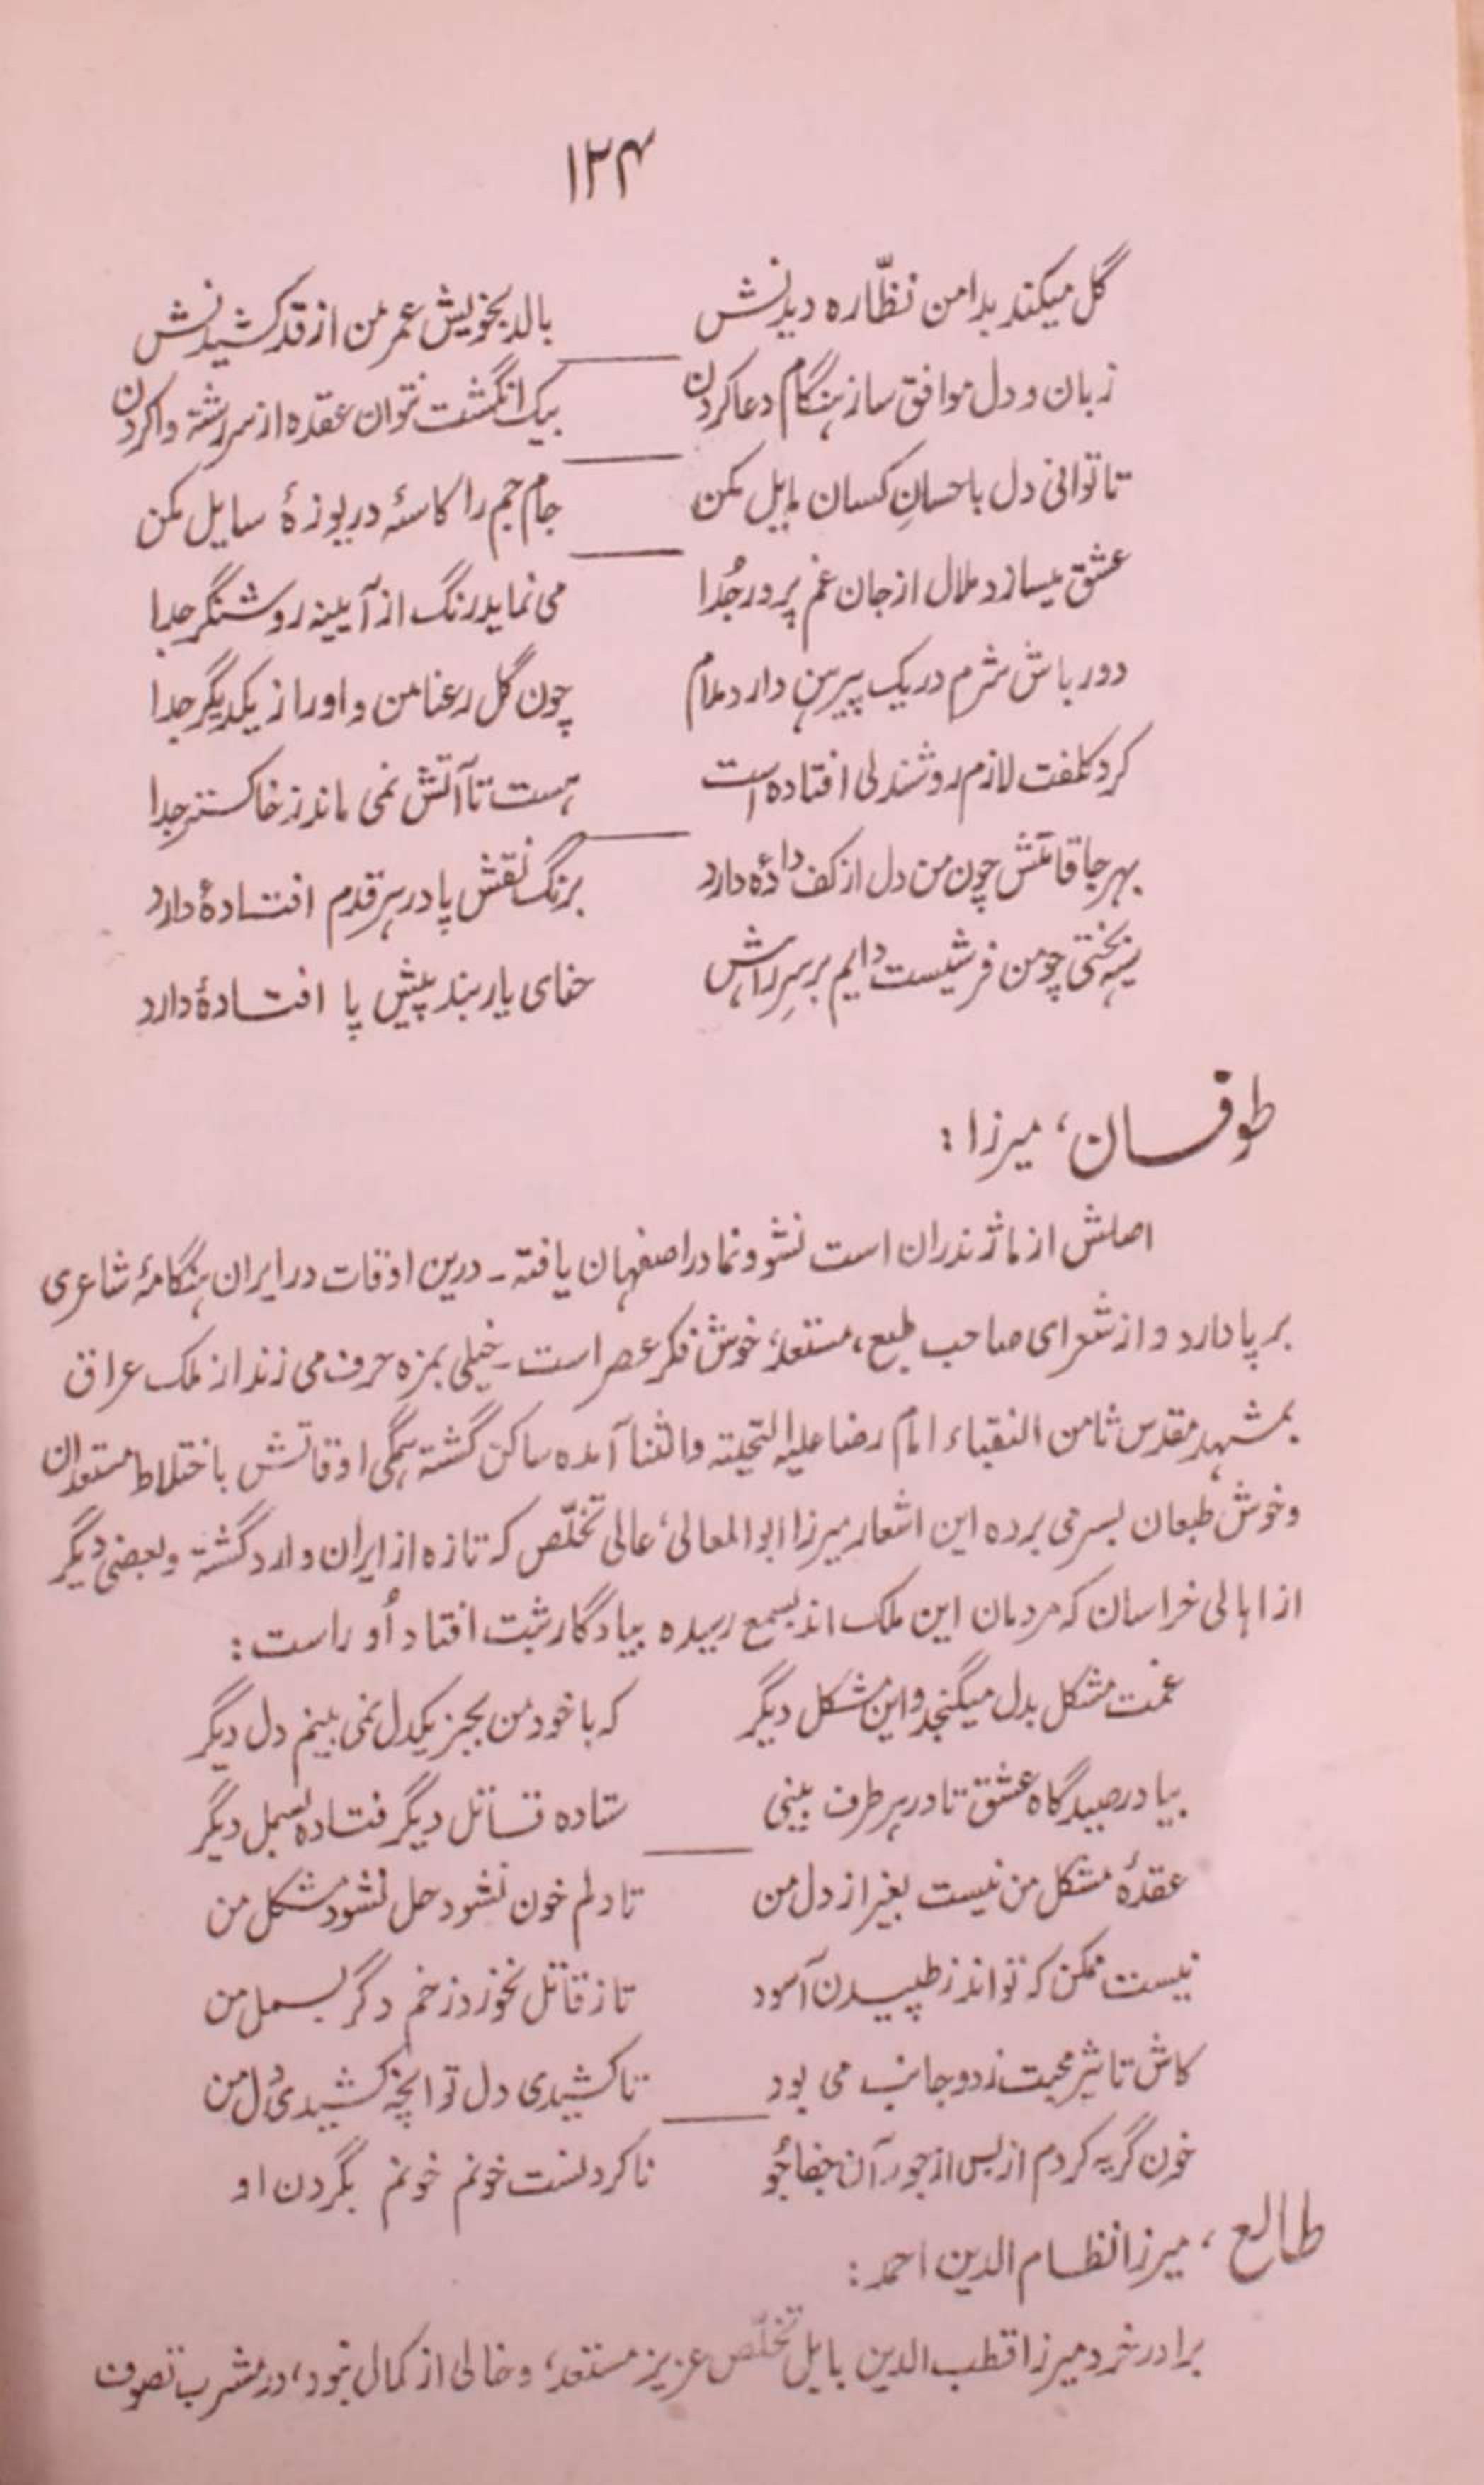 ۱۲۴
گل میکند بدامن نظّاره دیدنش بالد بخویش عمر من از قد کشیدنش
زبان و دل موافق ساز هنگام دعا کردن بیک انگشت نتوان عقده از سر رشته وا کردن
تا توانی دل باحسانِ کسان مایل مکن جام جم را کاسۀ دریوزۀ سایل مکن
عشق میسازد ملال از جان غم پرور جُدا می نماید رنگ از آیینه روشنگر جدا
دور باش شرم در یک پیرهن دارد مدام چون گل رعنا من و او را از یکدیگر جدا
گرد کلفت لازم روشندلی افتاده است هست تا آتش نمی ماند ز خاکستر جدا
بهر جا قامتش چون من دل از کف دادۀ دارد برنگ نقش پا در هر قدم افتادۀ دارد
سیه بختی چو من فرشیست دایم بر سرِ راهش حنای یار بند پیش پا افتادۀ دارد
طوفان، میرزا :
اصلش از ماژندران است نشو و نما در اصفهان یافته ـ درین اوقات در ایران هنگامۀ شاعری
بر پا دارد و از شعرای صاحب طبع، مستعد، خوش فکر عصر است ـ خیلی بمزه حرف می زند از ملک عراق
بمشهد مقدس ثامن النقباء امام رضا علیه التحیته والثنا آمده ساکن گشته همگی اوقاتش باختلاط مستعدان
و خوش طبعان بسر می برده این اشعار میرزا ابوالمعالی، عالی تخلّص که تازه از ایران وارد گشته و بعضی دیگر
از اهالی خراسان که مردمان این ملک اند بسمع رسیده بیادگار ثبت افتاد اُو راست :
غمت مشکل بدل میگنجد و این مشکل دیگر که با خود من بجز یکدل نمی بینم دل دیگر
بیا در صیدگاه عشق تا در هر طرف بینی ستاده قاتل دیگر فتاده بسمل دیگر
عقدۀ مشکل من نیست بغیر از دل من تا دلم خون نشود حل نشود مشکل من
نیست ممکن که تواند ز طپیدن آسود تا ز قاتل نخورد زخم دگر بسمل من
کاش تاثیر محبت ز دو جانب می بود تا کشیدی دل تو انچه کشیدی دل من
خون گریه کردم از بس از جور آن جفاجُو ناکرده نست خونم خونم بگردن او
طالع، میرزا نظام الدین احمد :
برادر خرد میرزا قطب الدین مایل تخلّص عزیز مستعد، و خالی از کمال نبود، در مشرب تصوف